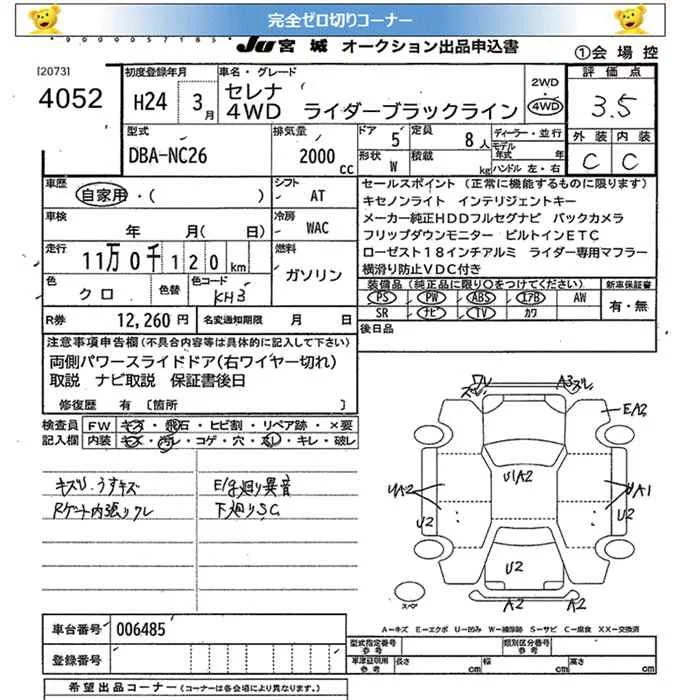 完全ゼロ切りコーナー
0000057185
JU宮城 オークション出品申込書
①会場控
[2073]
4052
初度登録年月
H24 3月
車名・グレード
セレナ
4WD ライダーブラックライン
2WD
・
4WD
評価点
3.5
型式
DBA-NC26
排気量
2000cc
ドア 5
定員 8人
形状 W
積載 kg
ディーラー・並行
モデル年式 年
ハンドル 左・右
外装 内装
C C
車歴
自家用・( )
シフト AT
車検 年 月(日)
冷房 WAC
走行 11万0千120km
燃料 ガソリン
色 クロ
色替
色コード KH3
R券 12,260円
名変通知期限 月 日
セールスポイント (正常に機能するものに限ります)
キセノンライト インテリジェントキー
メーカー純正HDDフルセグナビ バックカメラ
フリップダウンモニター ビルトインETC
ローゼスト18インチアルミ ライダー専用マフラー
横滑り防止VDC付き
装備品 (純正品に限り○をつけてください)
新車保証書
PS PW ABS エアB AW
SR ナビ TV カワ
有・無
後日品
注意事項申告欄(不具合内容等は具体的に記入して下さい)
両側パワースライドドア(右ワイヤー切れ)
取説 ナビ取説 保証書後日
修復歴 有 [箇所 ]
検査員記入欄
FW キズ・飛石・ヒビ割・リペア跡・×要
内装 キズ・汚レ・コゲ・穴・ネジ・キレ・破レ
キズリ、うすキズ
E/g廻り異音
Rゲート内張りワレ
下廻りS.C
ワレ
ズレ
A3ズレ
EA2
U1A2
UA2
UA1
U2
U2
U2
A2
A2
スペア
A－キズ E－エクボ U－凹み W－補修跡 S－サビ C－腐食 XX－交換済
車台番号 006485
登録番号
型式指定番号 参考
類別区分番号 参考
車庫証明用 参考
長さ cm
幅 cm
高さ cm
希望出品コーナー (コーナーは各会場により異なります。)